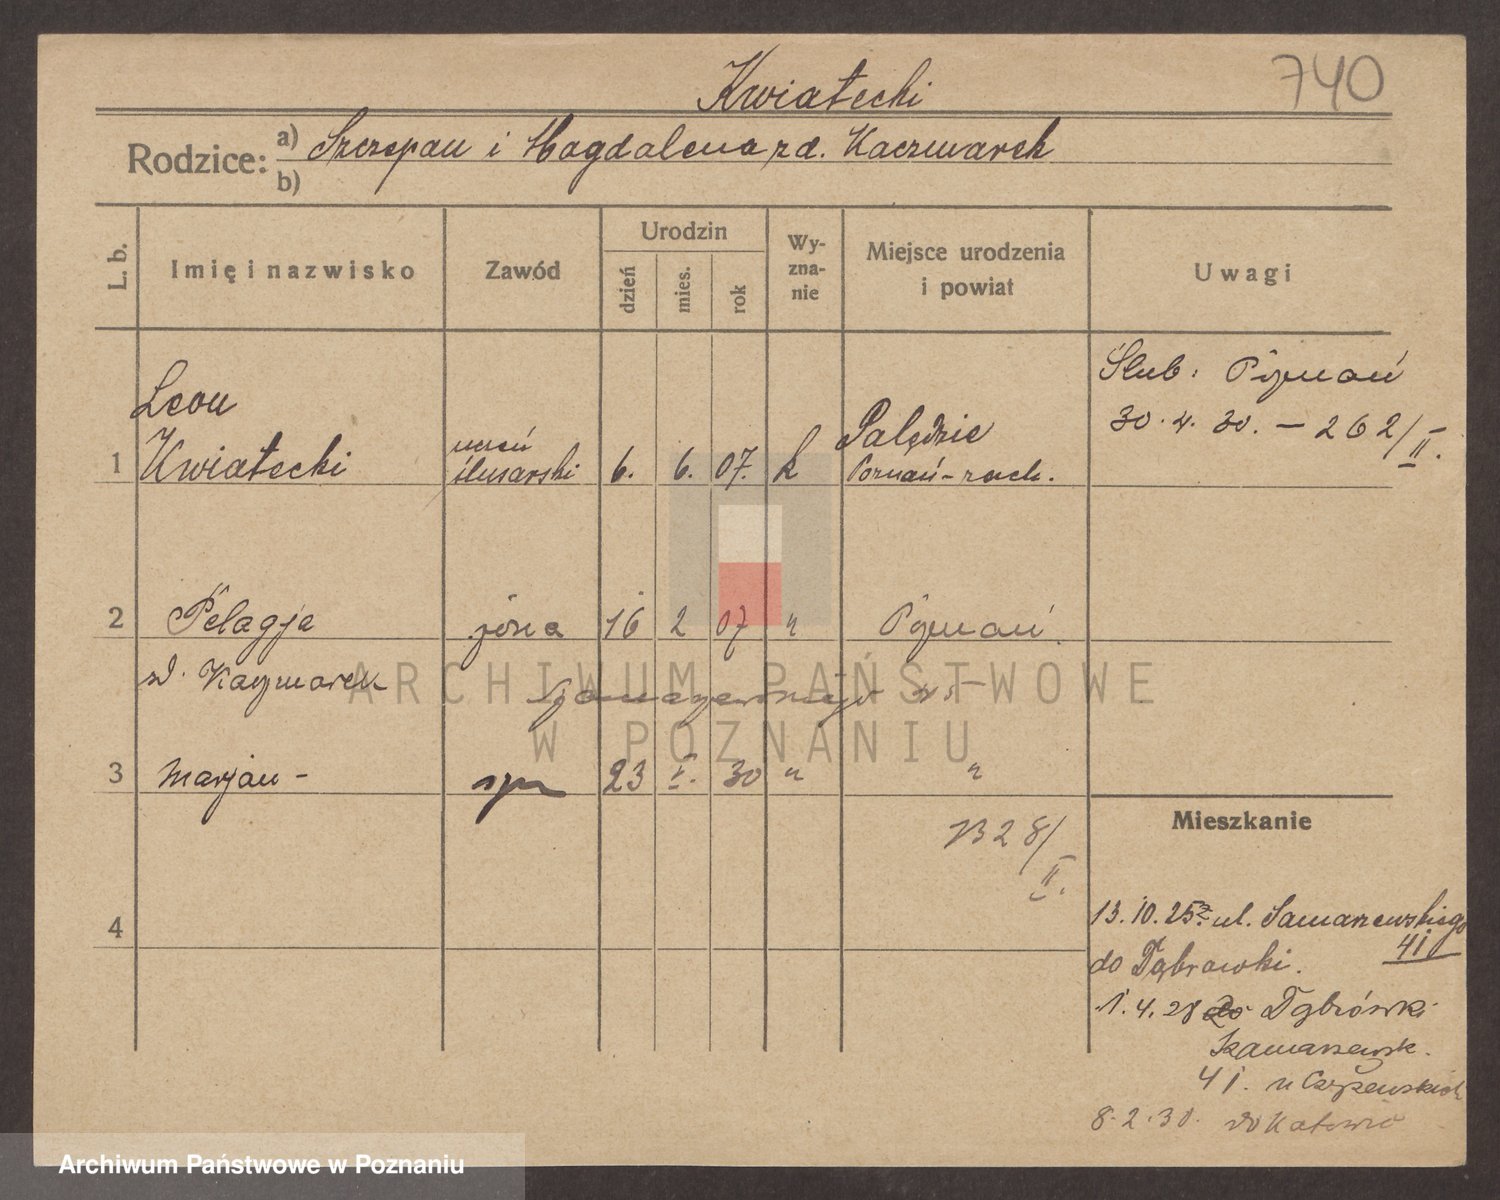 Kwiatecki
740
Rodzice: a) Szczepan i Magdalena zd. Kaczmarek
b)
L. b.
Imię i nazwisko
Zawód
Urodzin
dzień
mies.
rok
Wy-
zna-
nie
Miejsce urodzenia
i powiat
Uwagi
Leon
1 Kwiatecki
uczeń
ślusarski
6. 6. 07. k
Palędzie
Poznań-zach.
Ślub: Poznań
30.4.30. — 262/II.
2 Pelagja żona 16 2 07 " Poznań
zd. Kaczmarek
3 Marjan - syn 23 30 " "
28/II.
4
Mieszkanie
13.10.25 ul. Samarzewskiego
41
do Dąbrowki.
1.4.28 Dąbrówki
Szamarzewsk.
41.
8.2.30. do Katowic
ARCHIWUM PAŃSTWOWE
W POZNANIU
Archiwum Państwowe w Poznaniu